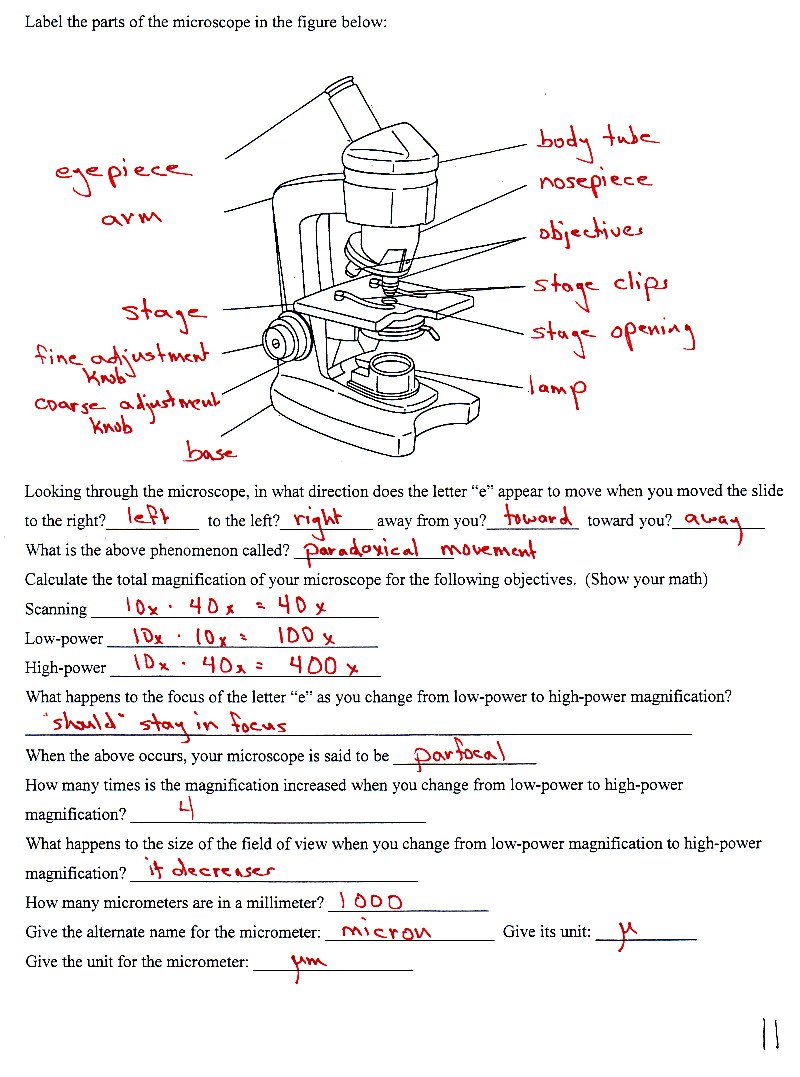 Label the parts of the microscope in the figure below:
body tube
eyepiece
nosepiece
arm
objectives
stage clips
stage
stage opening
fine adjustment
knob
lamp
coarse adjustment
knob
base
Looking through the microscope, in what direction does the letter “e” appear to move when you moved the slide
to the right? left to the left? right away from you? toward toward you? away
What is the above phenomenon called? paradoxical movement
Calculate the total magnification of your microscope for the following objectives. (Show your math)
Scanning 10x · 40x = 40x
Low-power 10x · 10x = 100x
High-power 10x · 40x = 400x
What happens to the focus of the letter “e” as you change from low-power to high-power magnification?
"should" stay in focus
When the above occurs, your microscope is said to be parfocal
How many times is the magnification increased when you change from low-power to high-power
magnification? 4
What happens to the size of the field of view when you change from low-power magnification to high-power
magnification? it decreases
How many micrometers are in a millimeter? 1000
Give the alternate name for the micrometer: micron Give its unit: µ
Give the unit for the micrometer: µm
11